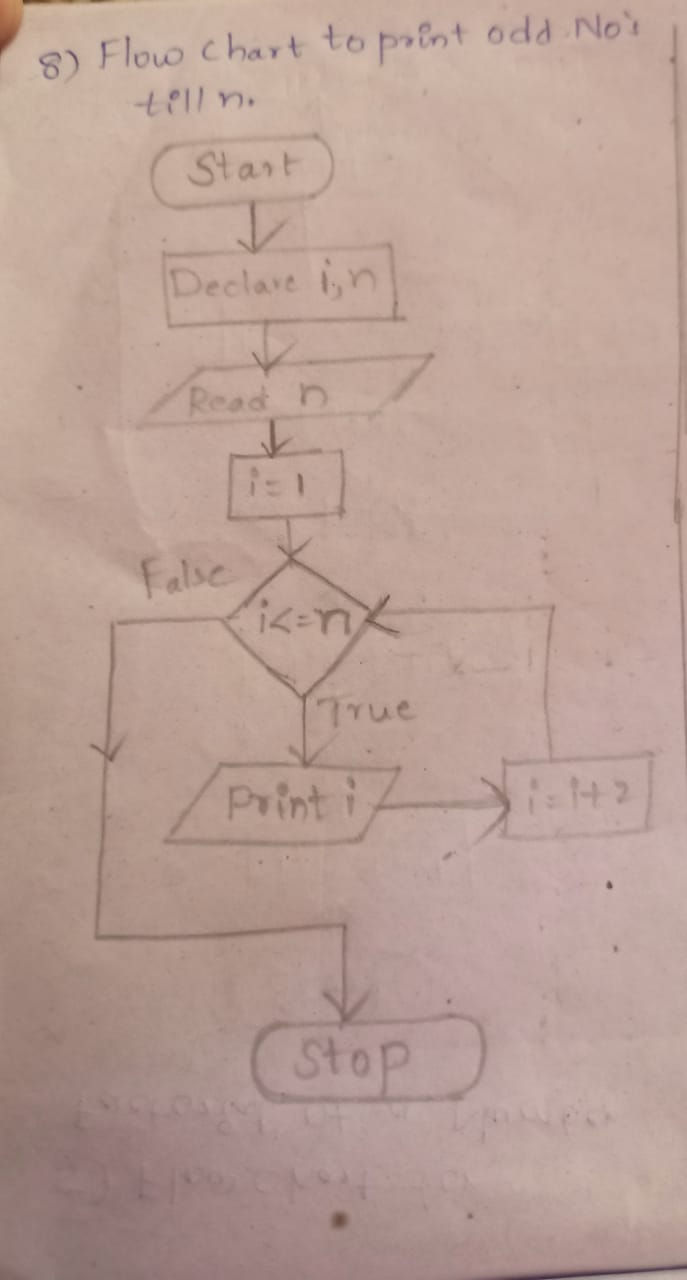 8) Flow Chart to print odd No's
till n.
Start
Declare i,n
Read n
i=1
False
i<=n
True
Print i
i=i+2
Stop